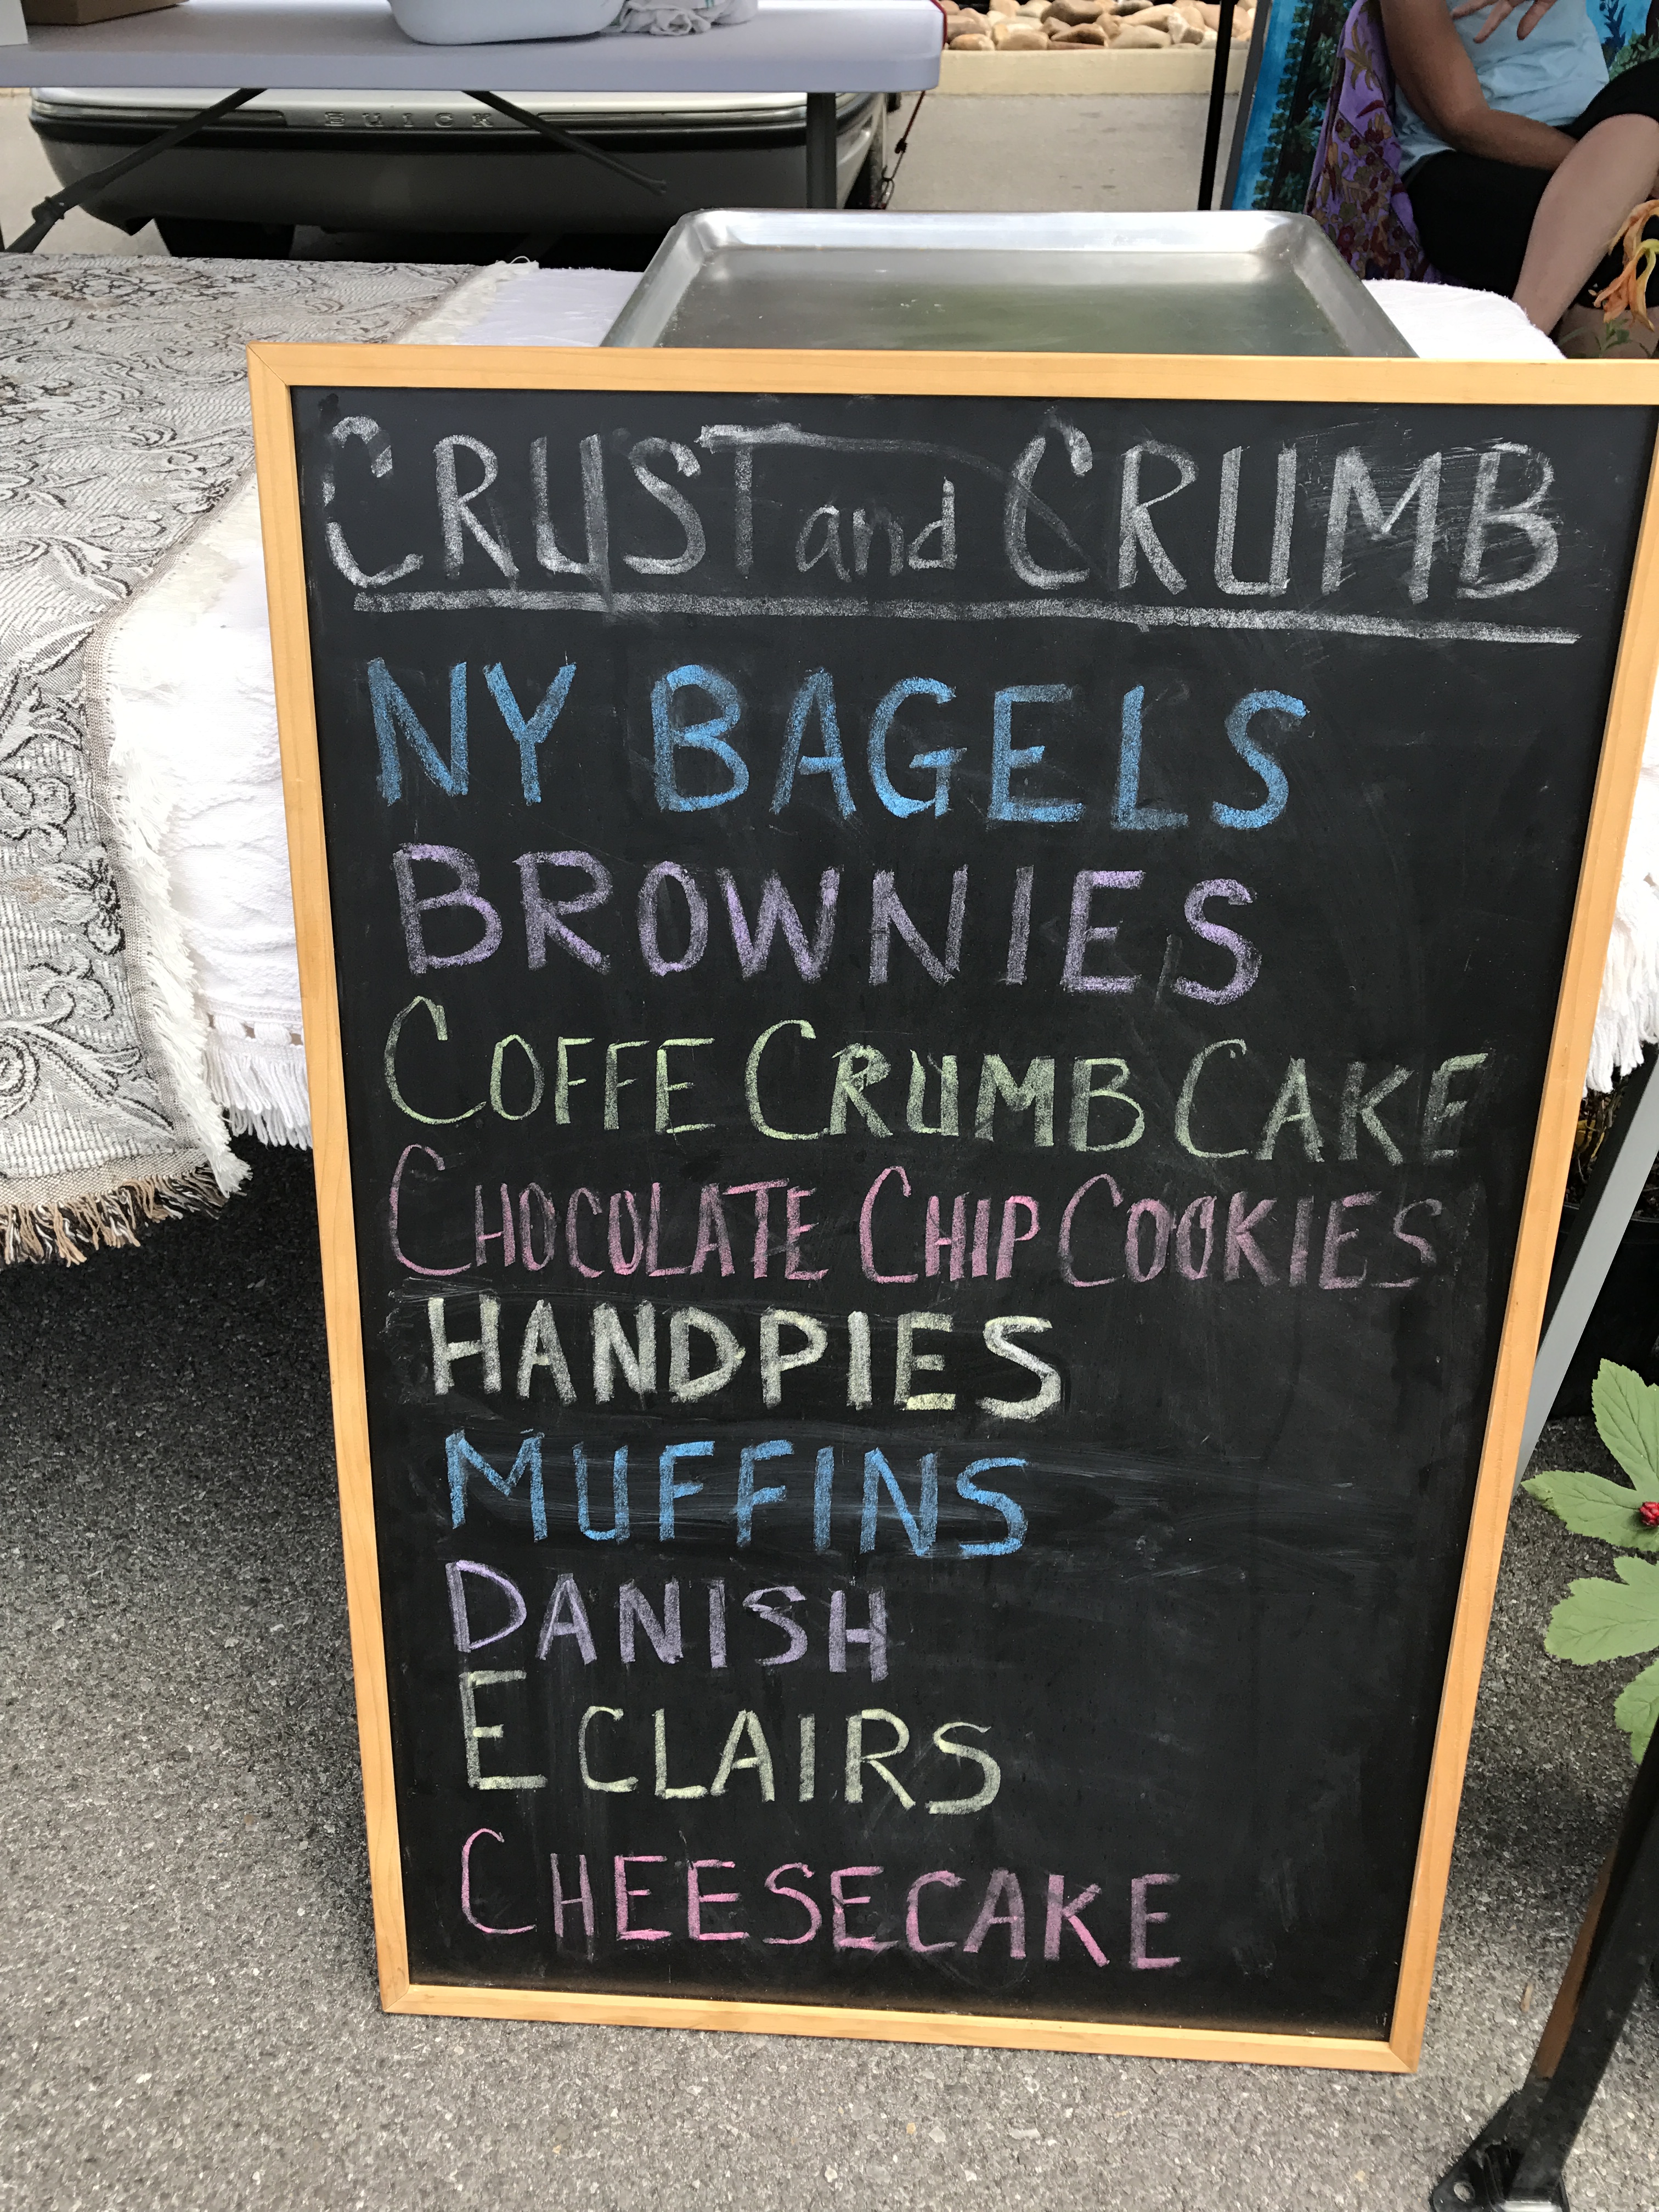 BUICK
CRUST and CRUMB
NY BAGELS
BROWNIES
COFFE CRUMB CAKE
CHOCOLATE CHIP COOKIES
HANDPIES
MUFFINS
DANISH
ECLAIRS
CHEESECAKE